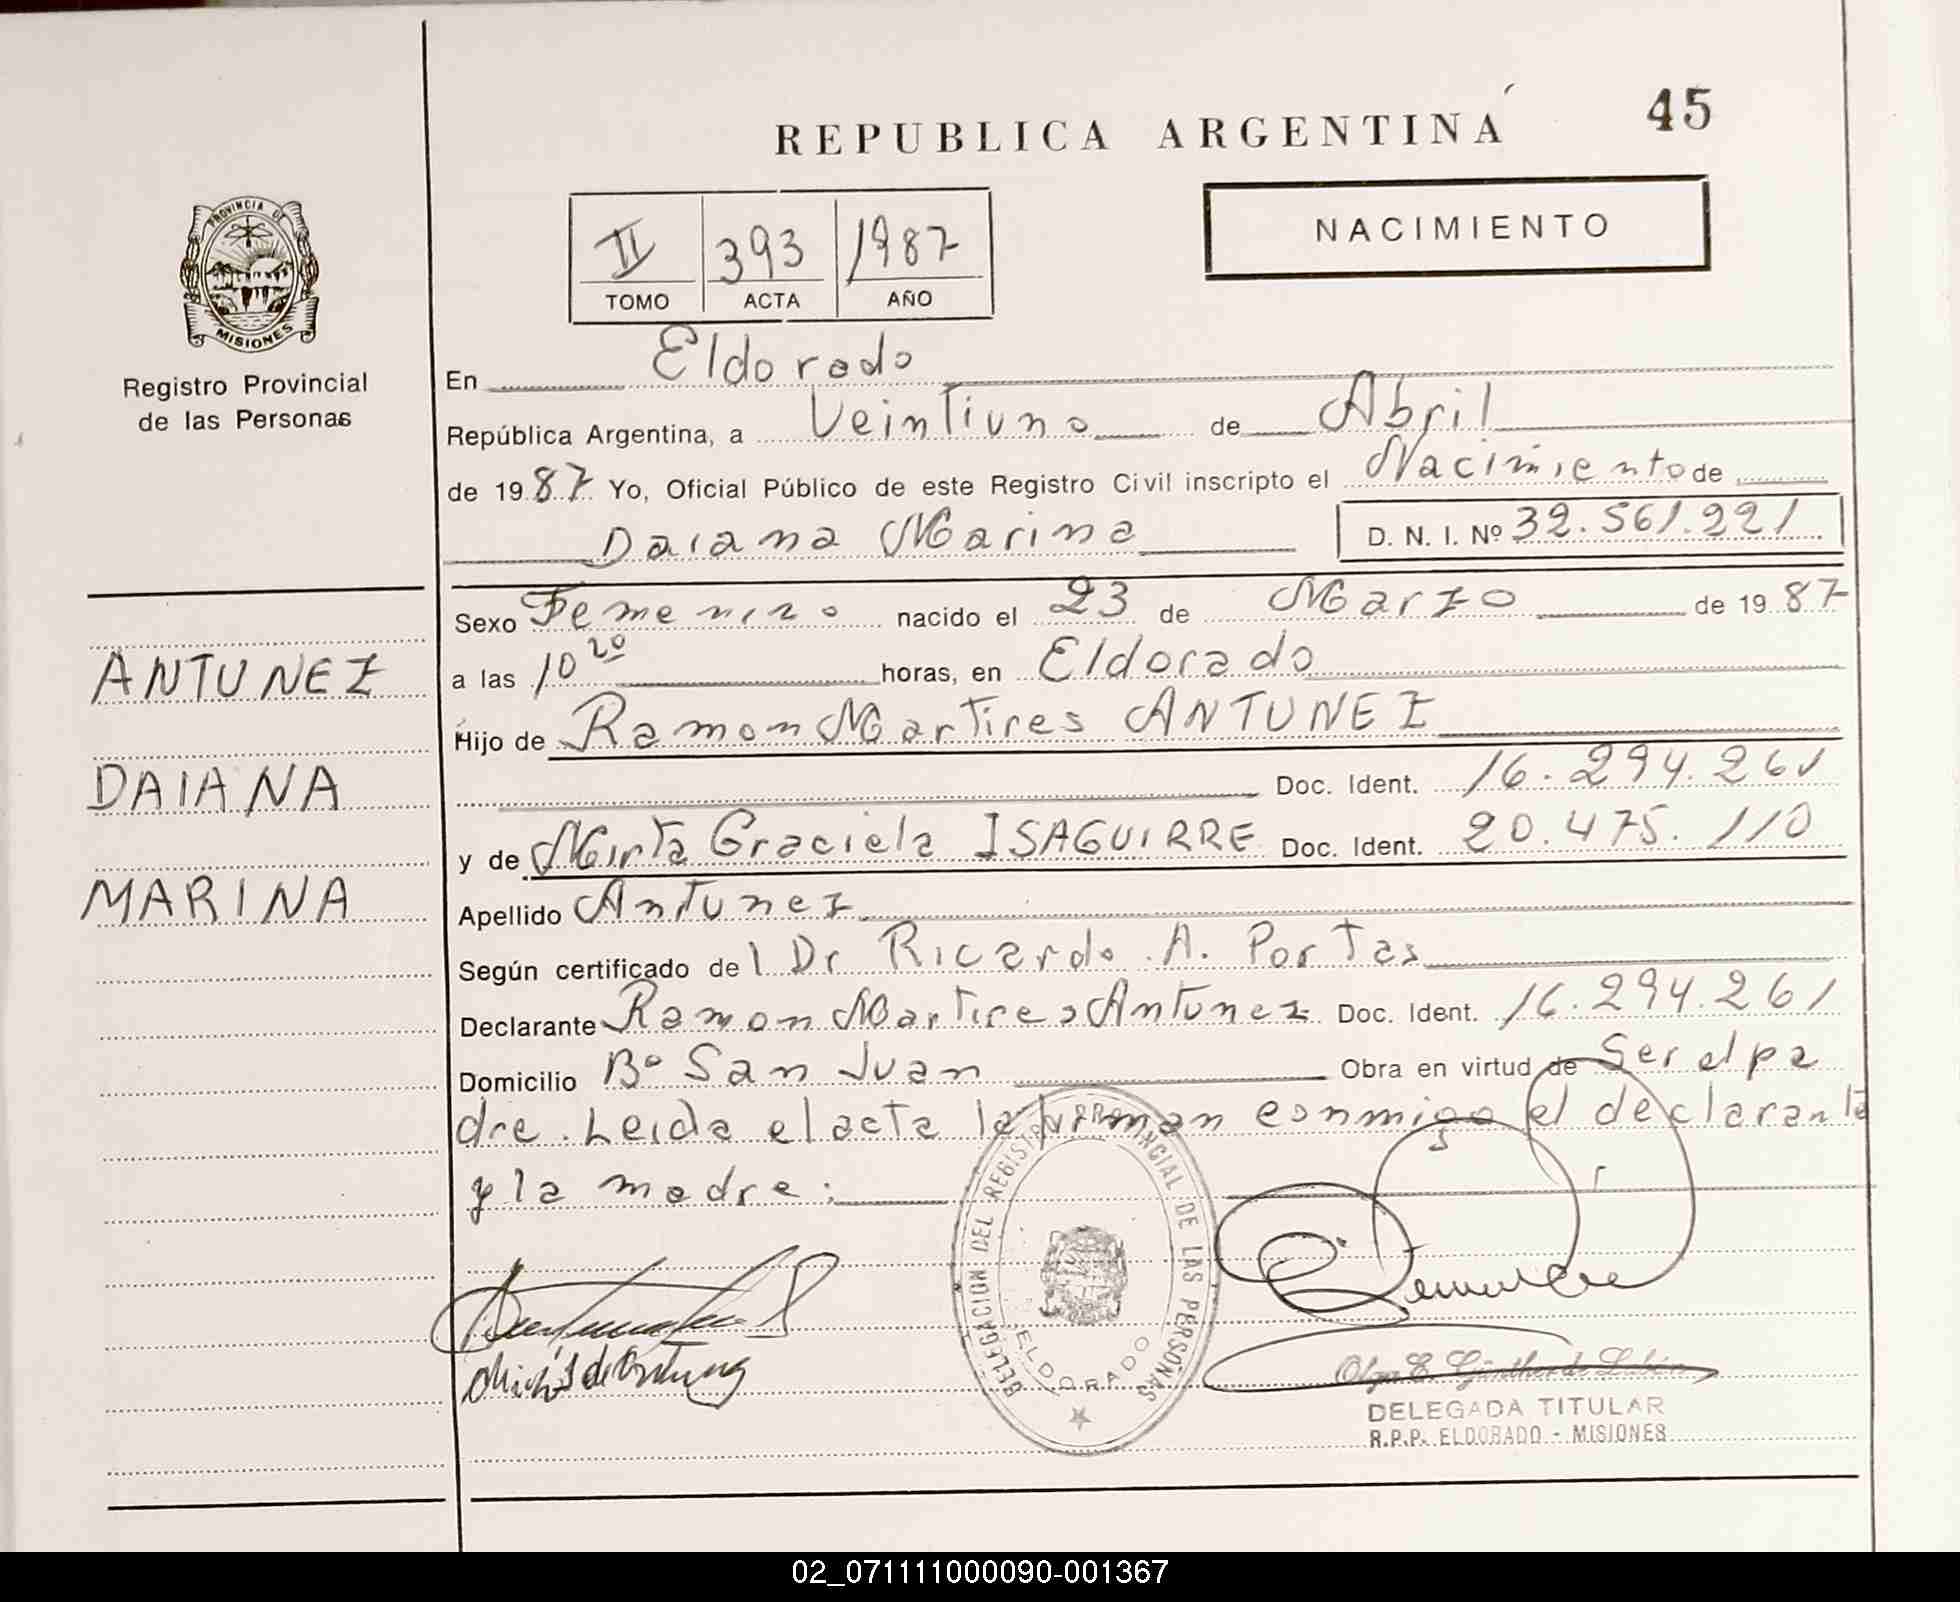 REPUBLICA ARGENTINA
45
PROVINCIA DE
MISIONES
Registro Provincial
de las Personas
II 393 1987
TOMO ACTA AÑO
NACIMIENTO
En Eldorado
República Argentina, a Veintiuno de Abril
de 1987 Yo, Oficial Público de este Registro Civil inscripto el Nacimiento de
Daiana Marina D. N. I. Nº 32.561.221
Sexo Femenino nacido el 23 de Marzo de 1987
a las 10 20 horas, en Eldorado
Hijo de Ramon Martires ANTUNEZ
Doc. Ident. 16.294.261
y de Mirta Graciela ISAGUIRRE Doc. Ident. 20.475.110
Apellido Antunez
Según certificado del Dr Ricardo A. Portas
Declarante Ramon Martires Antunez Doc. Ident. 16.294.261
Domicilio Bº San Juan Obra en virtud de Ser el pa
dre. Leida el acta la firman conmigo el declarante
y la madre.
ANTUNEZ
DAIANA
MARINA
DELEGACION DEL REGISTRO PROVINCIAL DE LAS PERSONAS
ELDORADO
Olga E. Günther de
DELEGADA TITULAR
R.P.P. ELDORADO - MISIONES
02_071111000090-001367